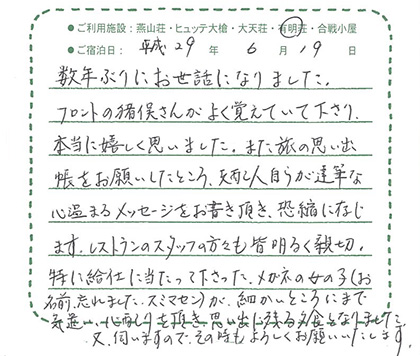 ● ご利用施設：燕山荘・ヒュッテ大槍・大天荘・有明荘・合戦小屋
● ご宿泊日：平成29年 6月19日
数年ぶりにお世話になりました。
フロントの猪俣さんがよく覚えていて下さり、
本当に嬉しく思いました。また旅の思い出
帳をお願いしたところ、支配人自らが達筆な
心温まるメッセージをお書き頂き、恐縮に存じ
ます。レストランのスタッフの方々も皆明るく親切。
特に給仕に当たって下さった、メガネの女の子（お
名前、忘れました。スミマセン）が、細かいところにまで
気遣い、心配りを頂き、思い出に残る夕食となりました。
又、伺いますので、その時もよろしくお願いいたします。